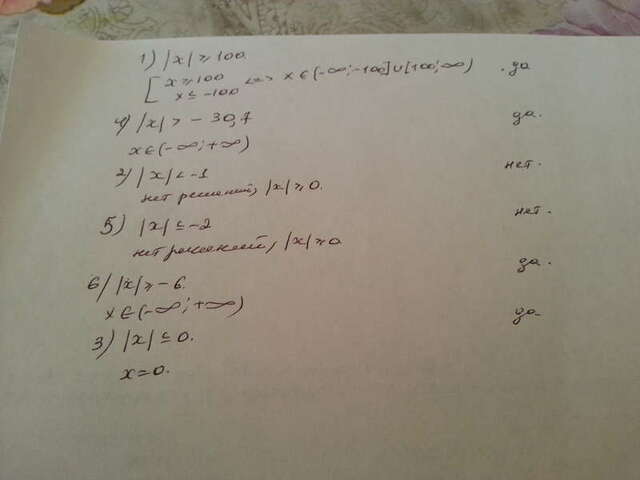 1) |x| ≥ 100.
[ x ≥ 100
x ≤ -100 <=> x ∈ (-∞; -100] ∪ [100; ∞) . да
4) |x| > - 30,7 да.
x ∈ (-∞; +∞)
2) |x| < -1 нет.
нет решений, |x| ≥ 0.
5) |x| ≤ -2 нет.
нет решений, |x| ≥ 0
6) |x| ≥ - 6. да.
x ∈ (-∞; +∞)
3) |x| ≤ 0. да.
x = 0.